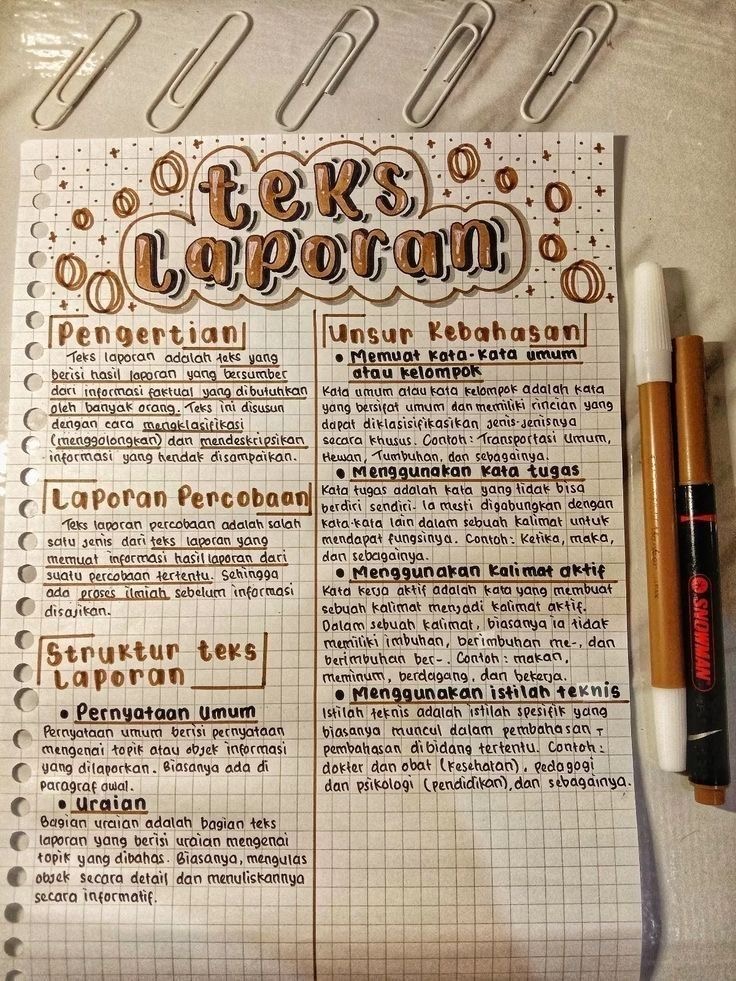 teks
laporan
Pengertian
Teks laporan adalah teks yang
berisi hasil laporan yang bersumber
dari informasi faktual yang dibutuhkan
oleh banyak orang. Teks ini disusun
dengan cara mengklasifikasi
(menggolongkan) dan mendeskripsikan
informasi yang hendak disampaikan.
Laporan Percobaan
Teks laporan percobaan adalah salah
satu jenis dari teks laporan yang
memuat informasi hasil laporan dari
suatu percobaan tertentu. Sehingga
ada proses ilmiah sebelum informasi
disajikan.
Struktur teks
Laporan
• Pernyataan Umum
Pernyataan umum berisi pernyataan
mengenai topik atau objek informasi
yang dilaporkan. Biasanya ada di
paragraf awal.
• Uraian
Bagian uraian adalah bagian teks
laporan yang berisi uraian mengenai
topik yang dibahas. Biasanya, mengulas
objek secara detail dan menuliskannya
secara informatif.
Unsur Kebahasan
• Memuat kata-kata umum
atau kelompok
Kata umum atau kata kelompok adalah kata
yang bersifat umum dan memiliki rincian yang
dapat diklasisifikasikan jenis-jenisnya
secara khusus. Contoh: Transportasi Umum,
Hewan, Tumbuhan, dan sebagainya.
• Menggunakan kata tugas
Kata tugas adalah kata yang tidak bisa
berdiri sendiri. Ia mesti digabungkan dengan
kata-kata lain dalam sebuah kalimat untuk
mendapat fungsinya. Contoh: Ketika, maka,
dan sebagainya.
• Menggunakan Kalimat aktif
Kata kerja aktif adalah kata yang membuat
sebuah kalimat menjadi kalimat aktif.
Dalam sebuah kalimat, biasanya ia tidak
memiliki imbuhan, berimbuhan me-, dan
berimbuhan ber-. Contoh: makan,
meminum, berdagang, dan bekerja.
• Menggunakan istilah teknis
Istilah teknis adalah istilah spesifik yang
biasanya muncul dalam pembahasan -
pembahasan dibidang tertentu. Contoh:
dokter dan obat (kesehatan), pedagogi
dan psikologi (pendidikan), dan sebagainya.
SNOWMAN